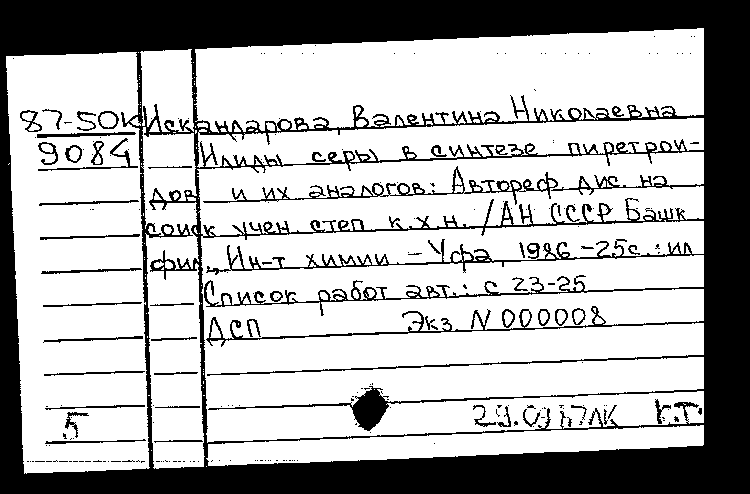 87-50К Искандарова, Валентина Николаевна
9084 Илиды серы в синтезе пиретрои-
дов и их аналогов: Автореф дис. на
соиск учен. степ к.х.н. /АН СССР Башк
фил., Ин-т химии. -Уфа, 1986 -25с.: ил
Список работ авт.: с 23-25
ДСП Экз. N 000008
5 К.Т.